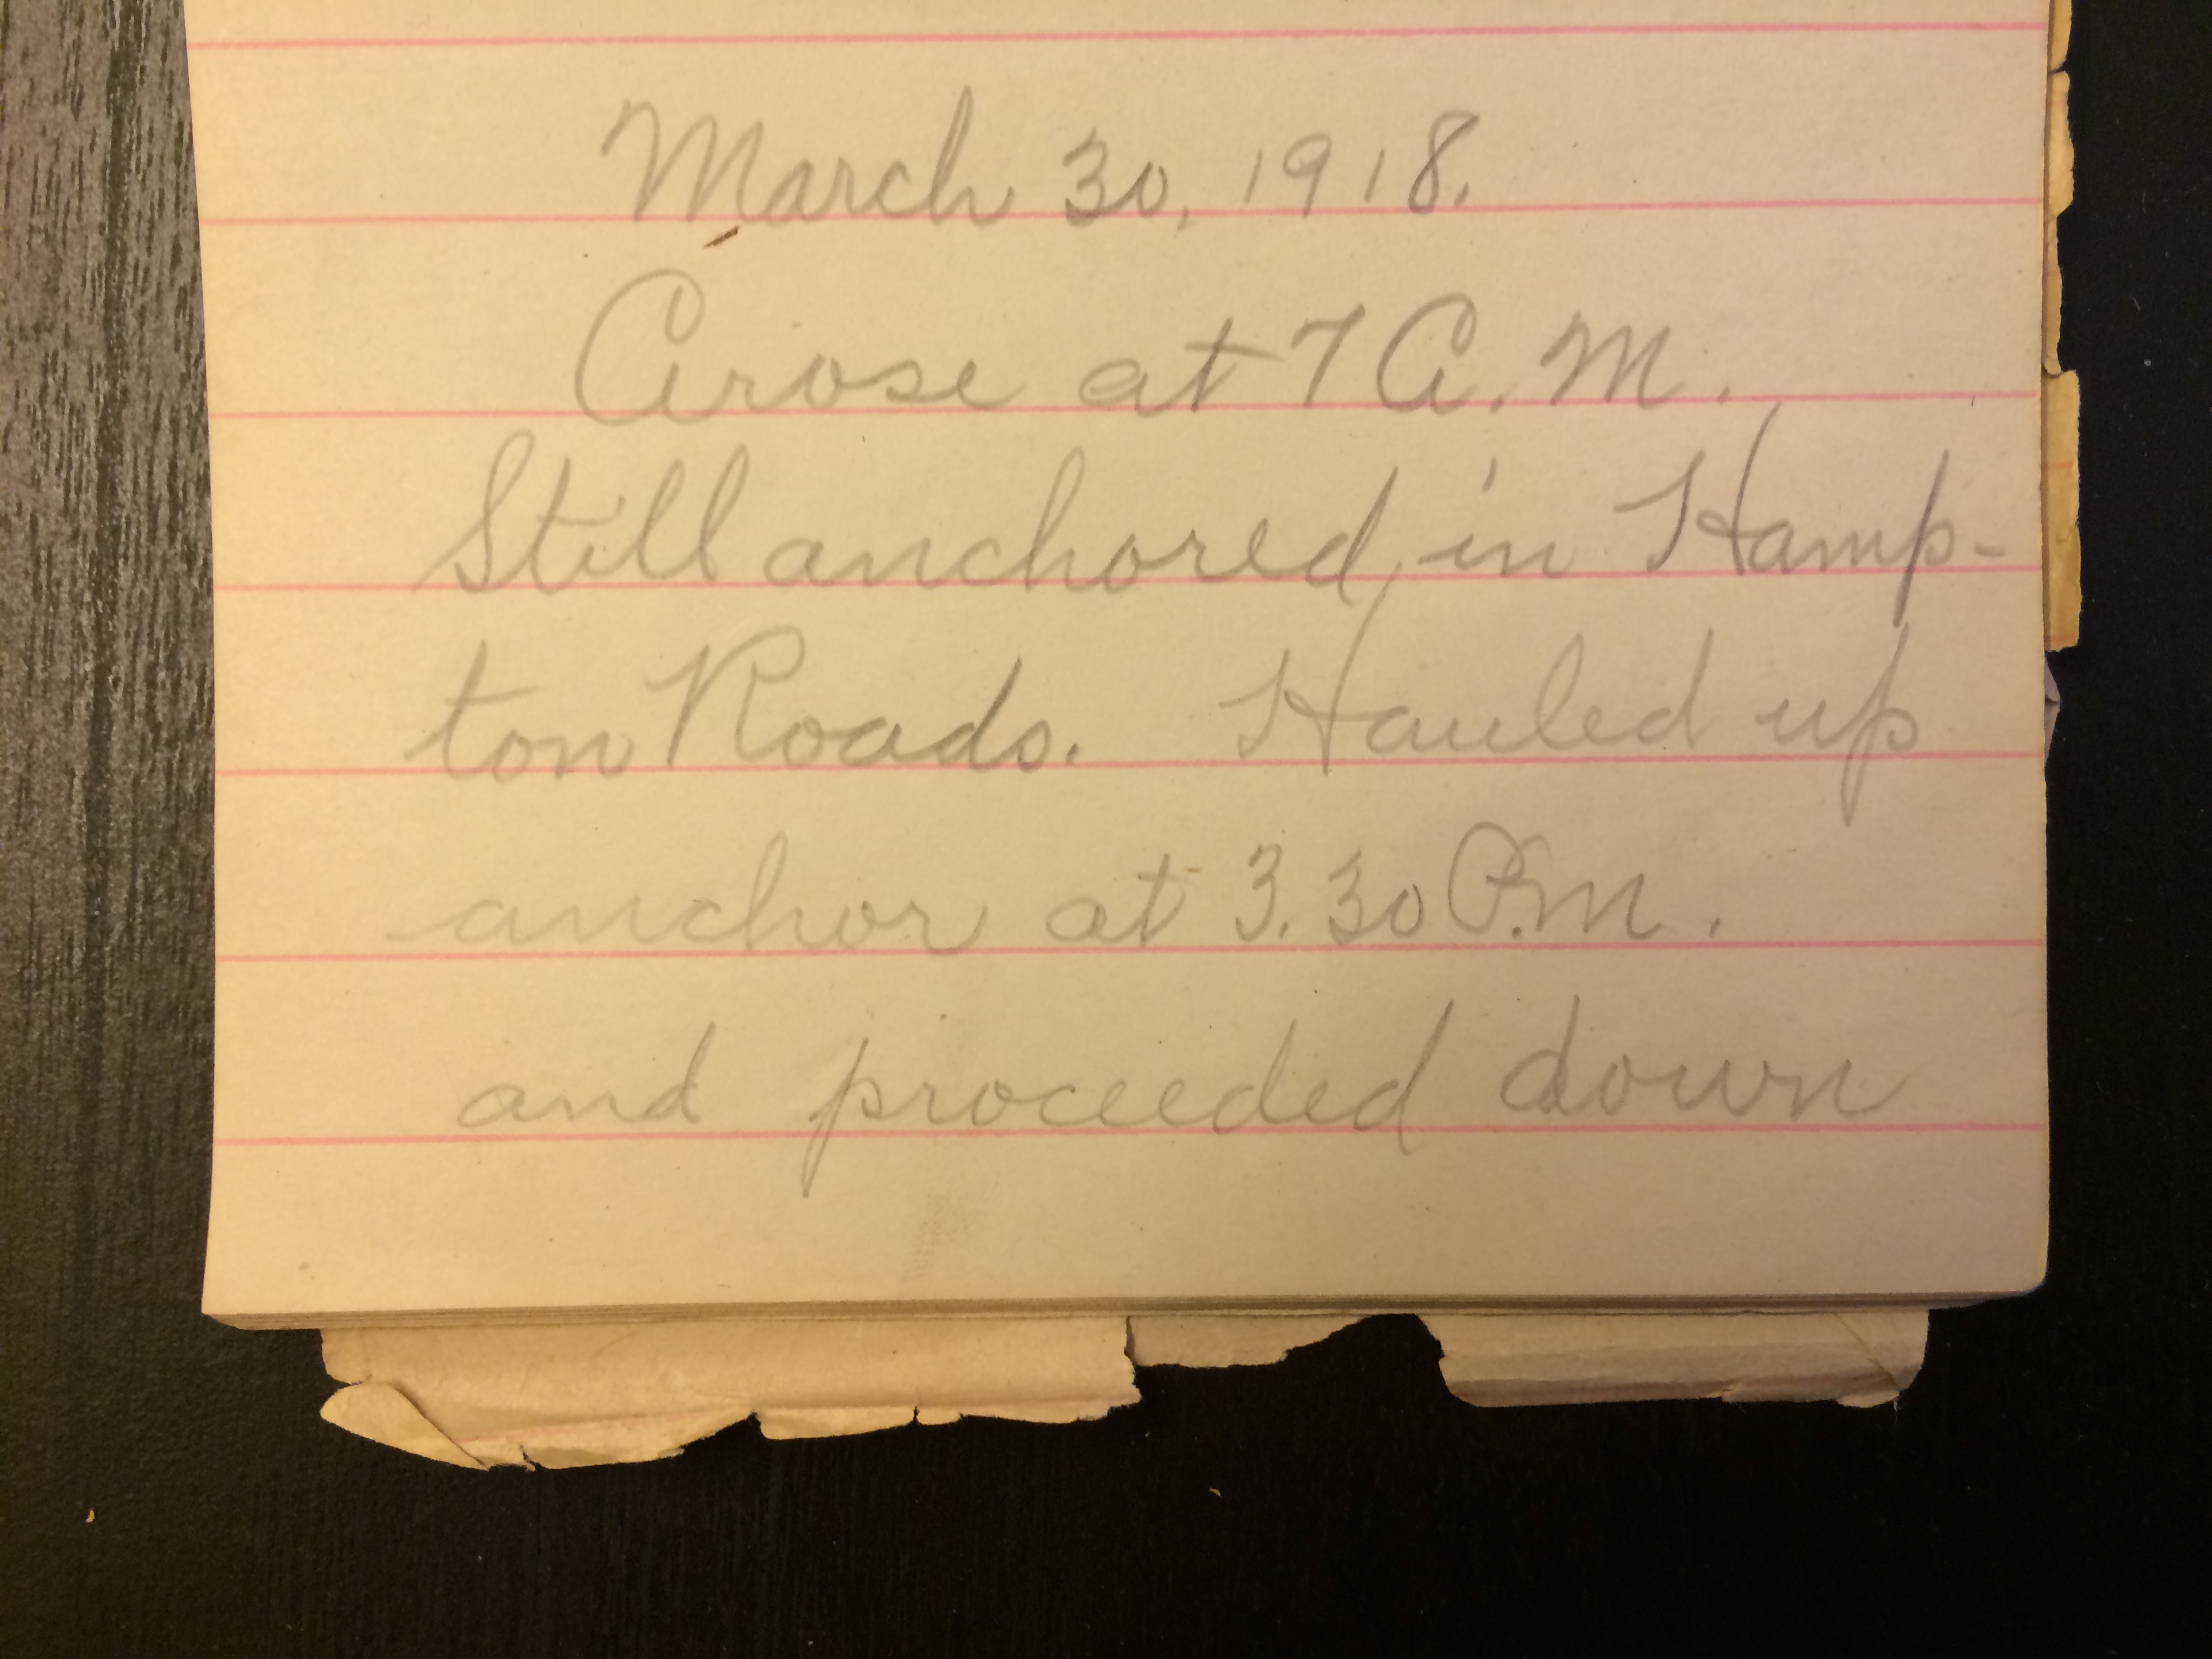 March 30, 1918.
Arose at 7 A.M.
Still anchored in Hamp-
ton Roads. Hauled up
anchor at 3.30 P.M.
and proceeded down